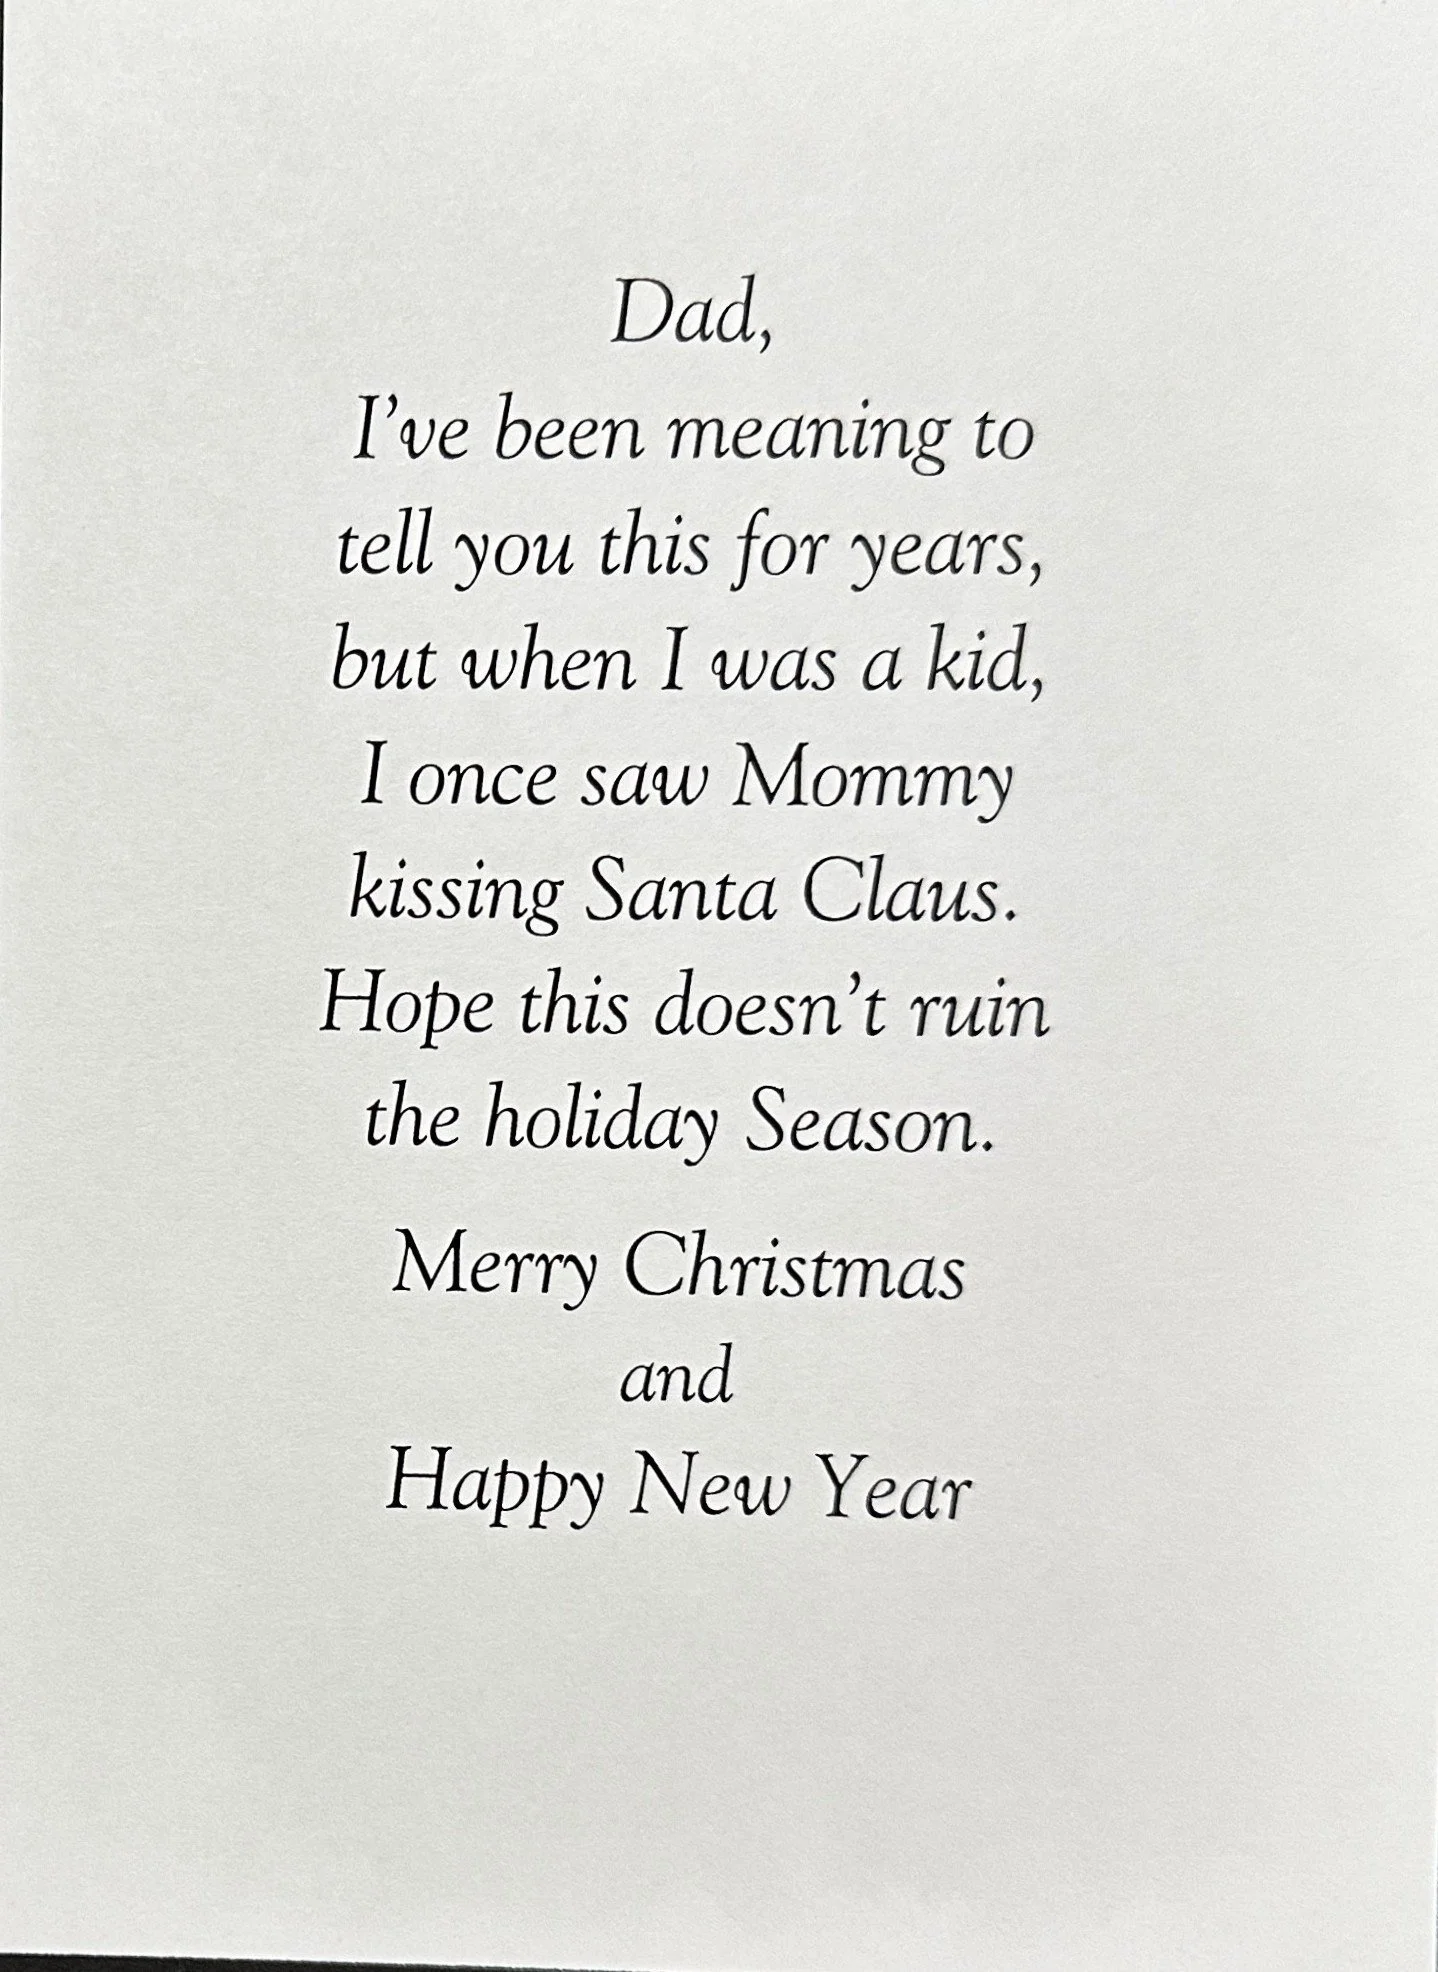 Dad,
I’ve been meaning to
tell you this for years,
but when I was a kid,
I once saw Mommy
kissing Santa Claus.
Hope this doesn’t ruin
the holiday Season.
Merry Christmas
and
Happy New Year